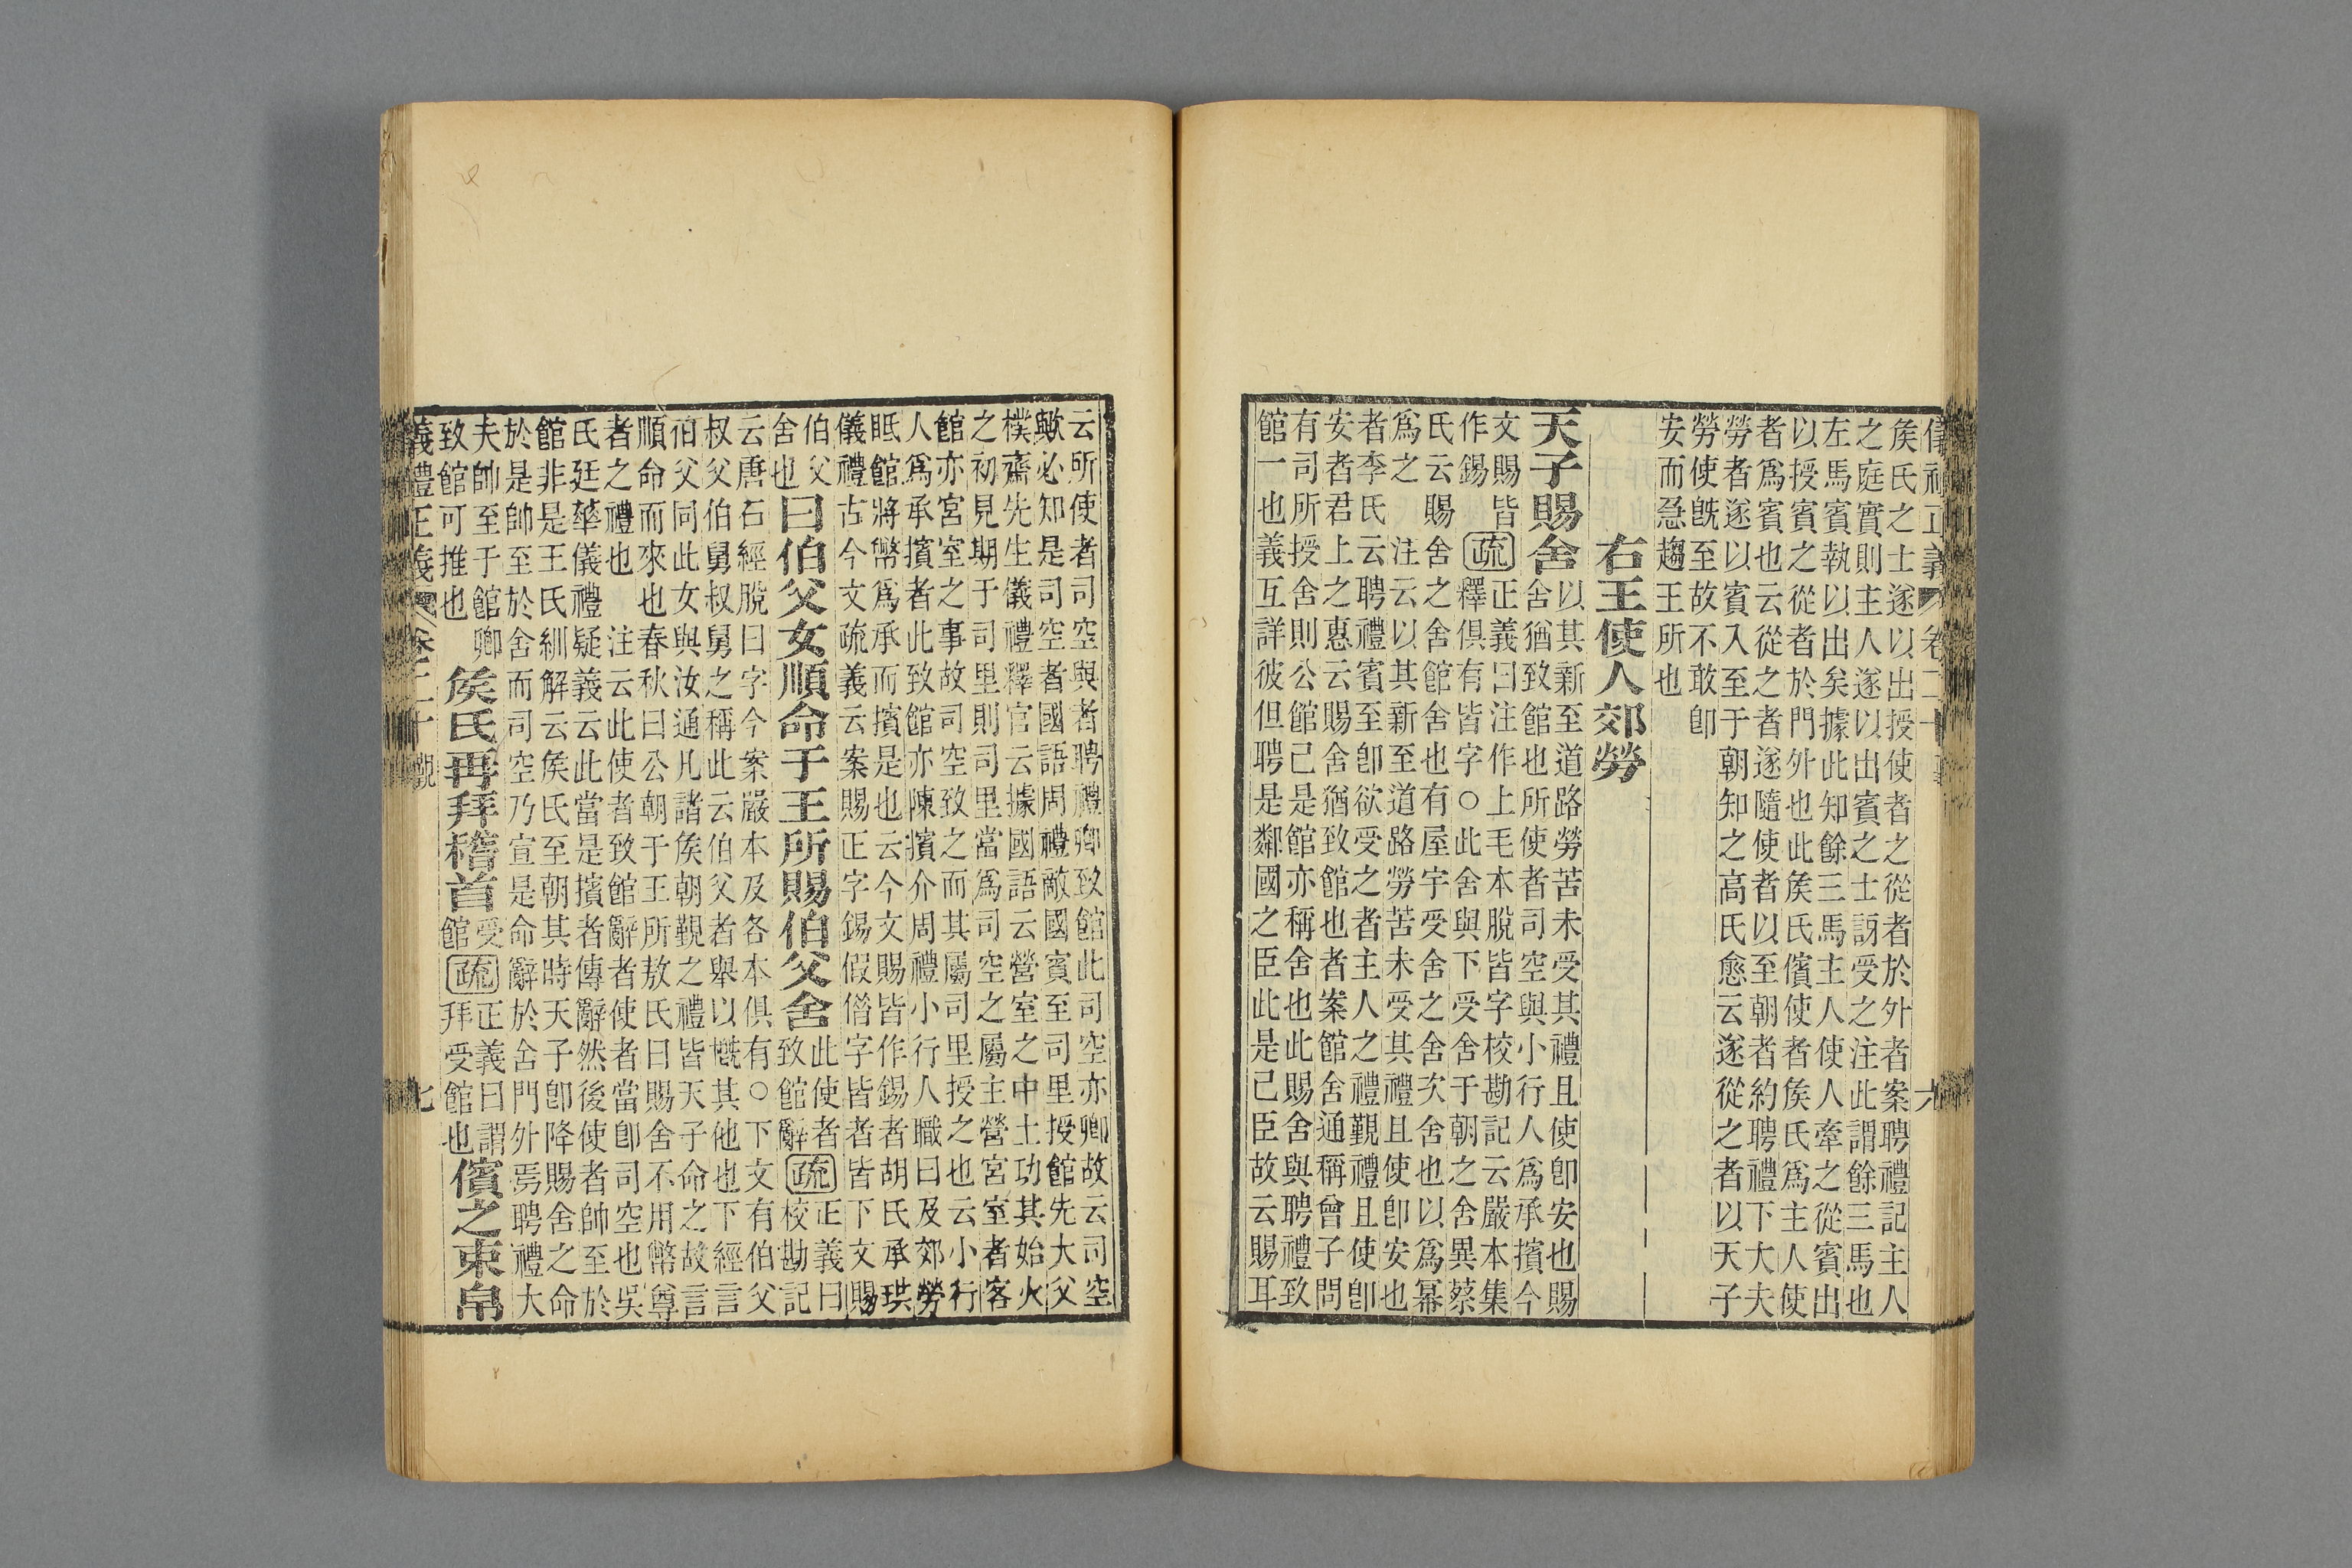 矦氏之士遂以出授使者之從者於外者案聘禮記主人
之庭實則主人遂以出賓之士訝受之注此謂餘三馬也
左馬賓執以出矣據此知餘三馬主人使人牽之從賓出
以授賓之從者於門外也此矦氏儐使者矦氏爲主人使
者爲賓也云從之者遂隨使者以至朝者約聘禮下大夫
勞者遂以賓入至于朝知之高氏愈云遂從之者以天子
勞使旣至故不敢卽
安而急趨王所也
右王使人郊勞
天子賜舍
以其新至道路勞苦未受其禮且使卽安也賜
舍猶致館也所使者司空與小行人爲承擯今
文賜皆
作錫
疏
正義曰注作上毛本脫皆字校勘記云嚴本集
釋俱有皆字○此舍與下受舍于朝之舍異蔡
氏云賜舍之舍館舍也有屋宇受舍之舍次舍也以爲幂
爲之 注云以其新至道路勞苦未受其禮且使卽安也
者李氏云聘禮賓至卽欲受之者主人之禮覲禮且使卽
安者君上之惠云賜舍猶致館也者案館舍通稱曾子問
有司所授舍則公館己是館亦稱舍也此賜舍與聘禮致
館一也義互詳彼但聘是鄰國之臣此是己臣故云賜耳
云所使者司空與者聘禮卿致館此司空亦卿故云司空
歟必知是司空者國語周禮敵國賓至司里授館先大父
樸齋先生儀禮釋官云據國語云營室之中土功其始火
之初見期于司里則司里當爲司空之屬主營宮室者客
館亦宮室之事故司空致之而其屬司里授之也云小行
人爲承擯者此致館亦陳擯介周禮小行人職曰及郊勞
眂館將幣爲承而擯是也云今文賜皆作錫者胡氏承珙
儀禮古今文疏義云案賜正字錫假借字皆者皆下文賜
伯父
舍也
曰伯父女順命于王所賜伯父舍
此使者
致館辭
疏
正義曰
校勘記
云唐石經脫曰字今案嚴本及各本俱有○下文有伯父
叔父伯舅叔舅之稱此云伯父者舉以槪其他也下經言
伯父同此女與汝通凡諸矦朝覲之禮皆天子命之故言
順命而來也春秋曰公朝于王所敖氏曰賜舍不用幣尊
者之禮也 注云此使者致館辭者使者當卽司空也吳
氏廷華儀禮疑義云此當是擯者傳辭然後使者帥至於
館非是王氏紃解云矦氏至朝其時天子卽降賜舍之命
於是帥至於舍而司空乃宣是命辭於舍門外焉聘禮大
夫帥至于館卿
致館可推也
矦氏再拜稽首
受
館
疏
正義曰謂
拜受館也
儐之束帛